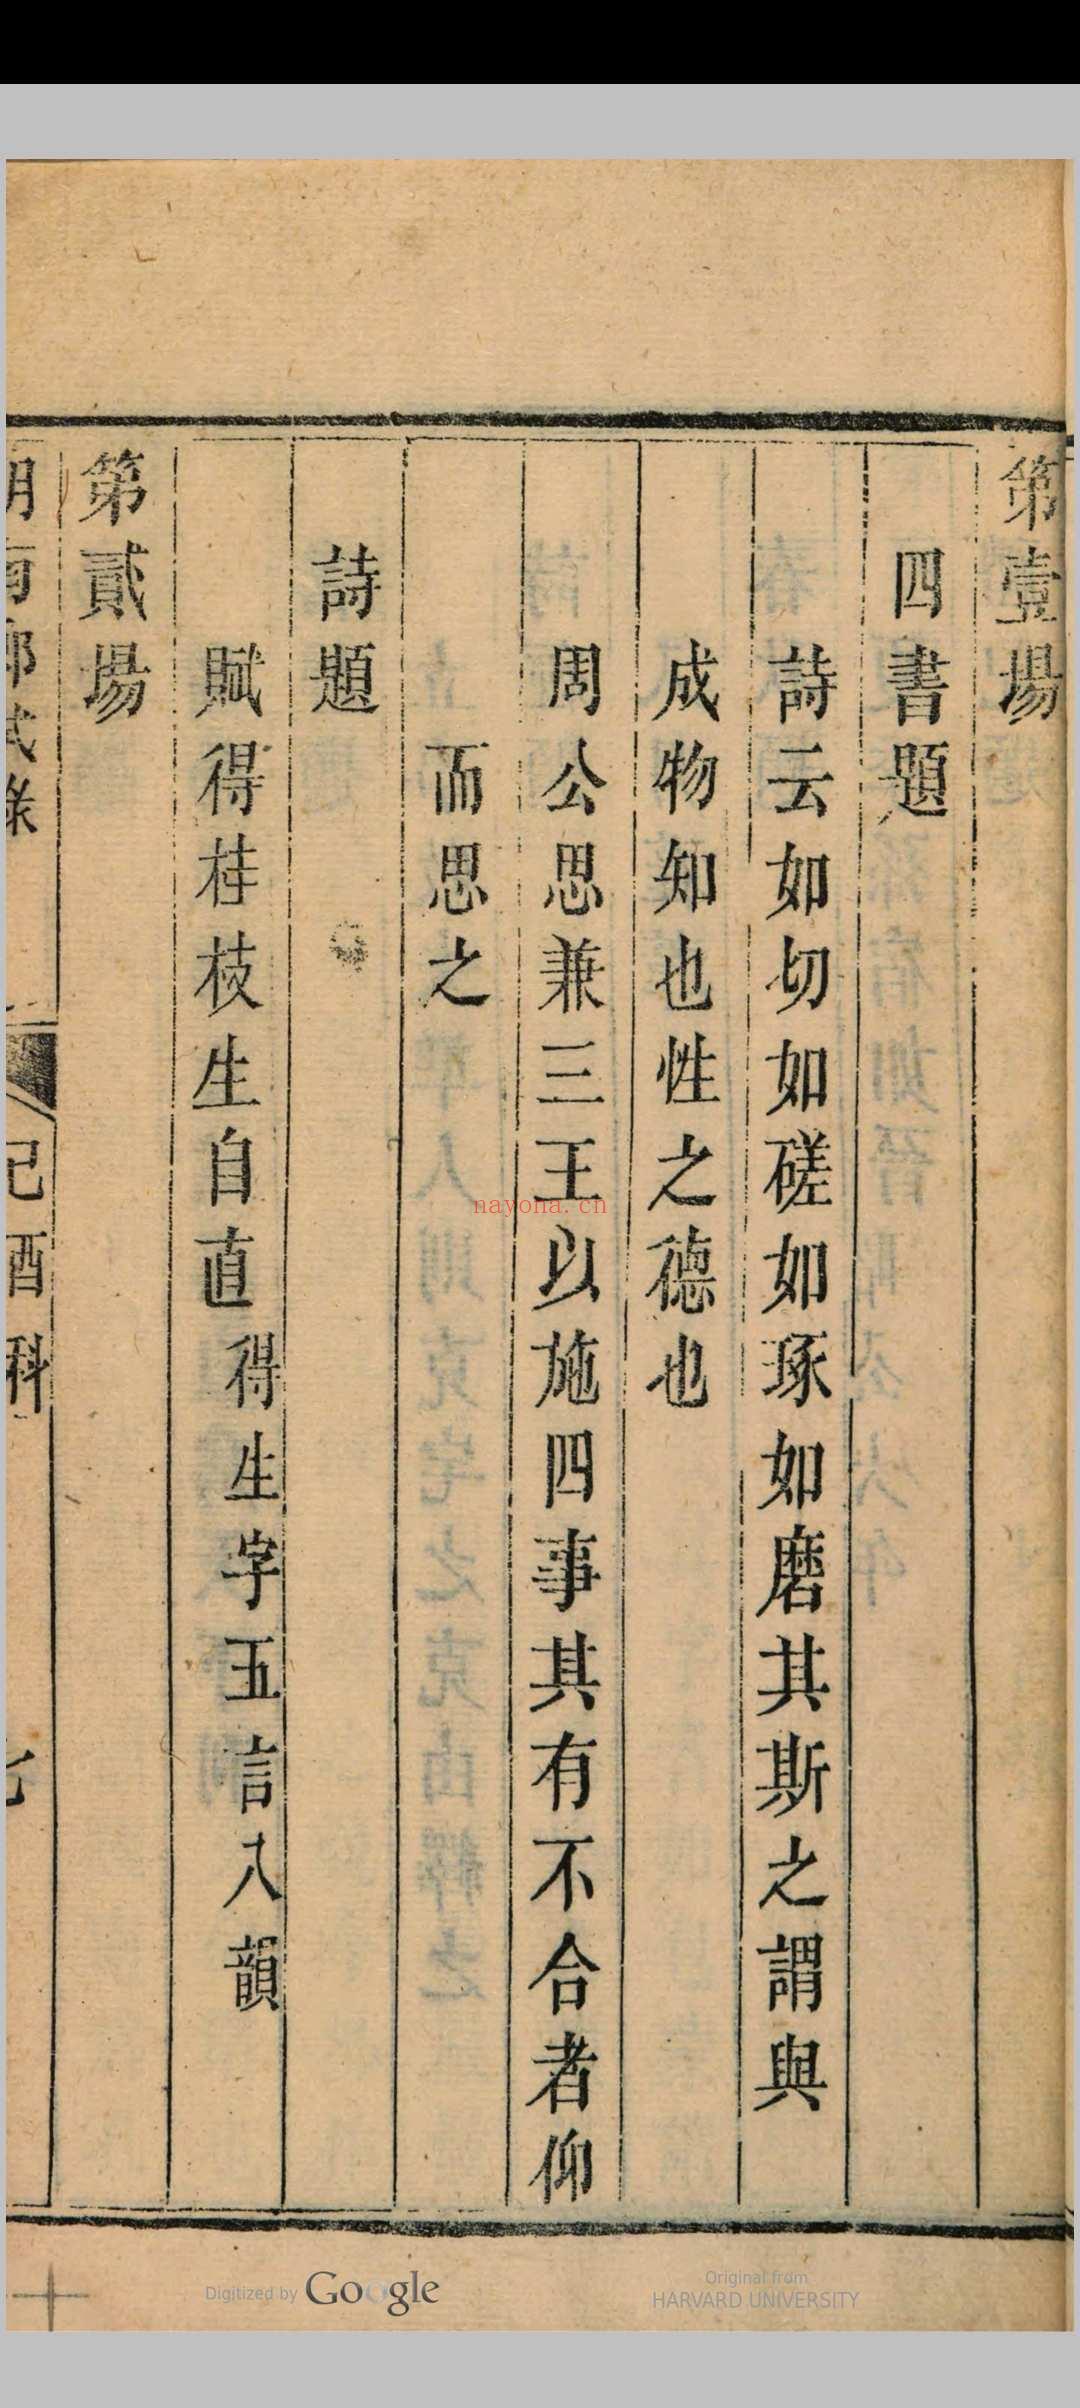 第壹場
四書題
詩云如切如磋如琢如磨其斯之謂與
成物知也性之德也
周公思兼三王以施四事其有不合者仰
而思之
詩題
賦得桂枝生自直得生字五言八韻
第貳場
鄉試錄
己酉科
七
nayona.cn
Digitized by Google
Original from
HARVARD UNIVERSITY